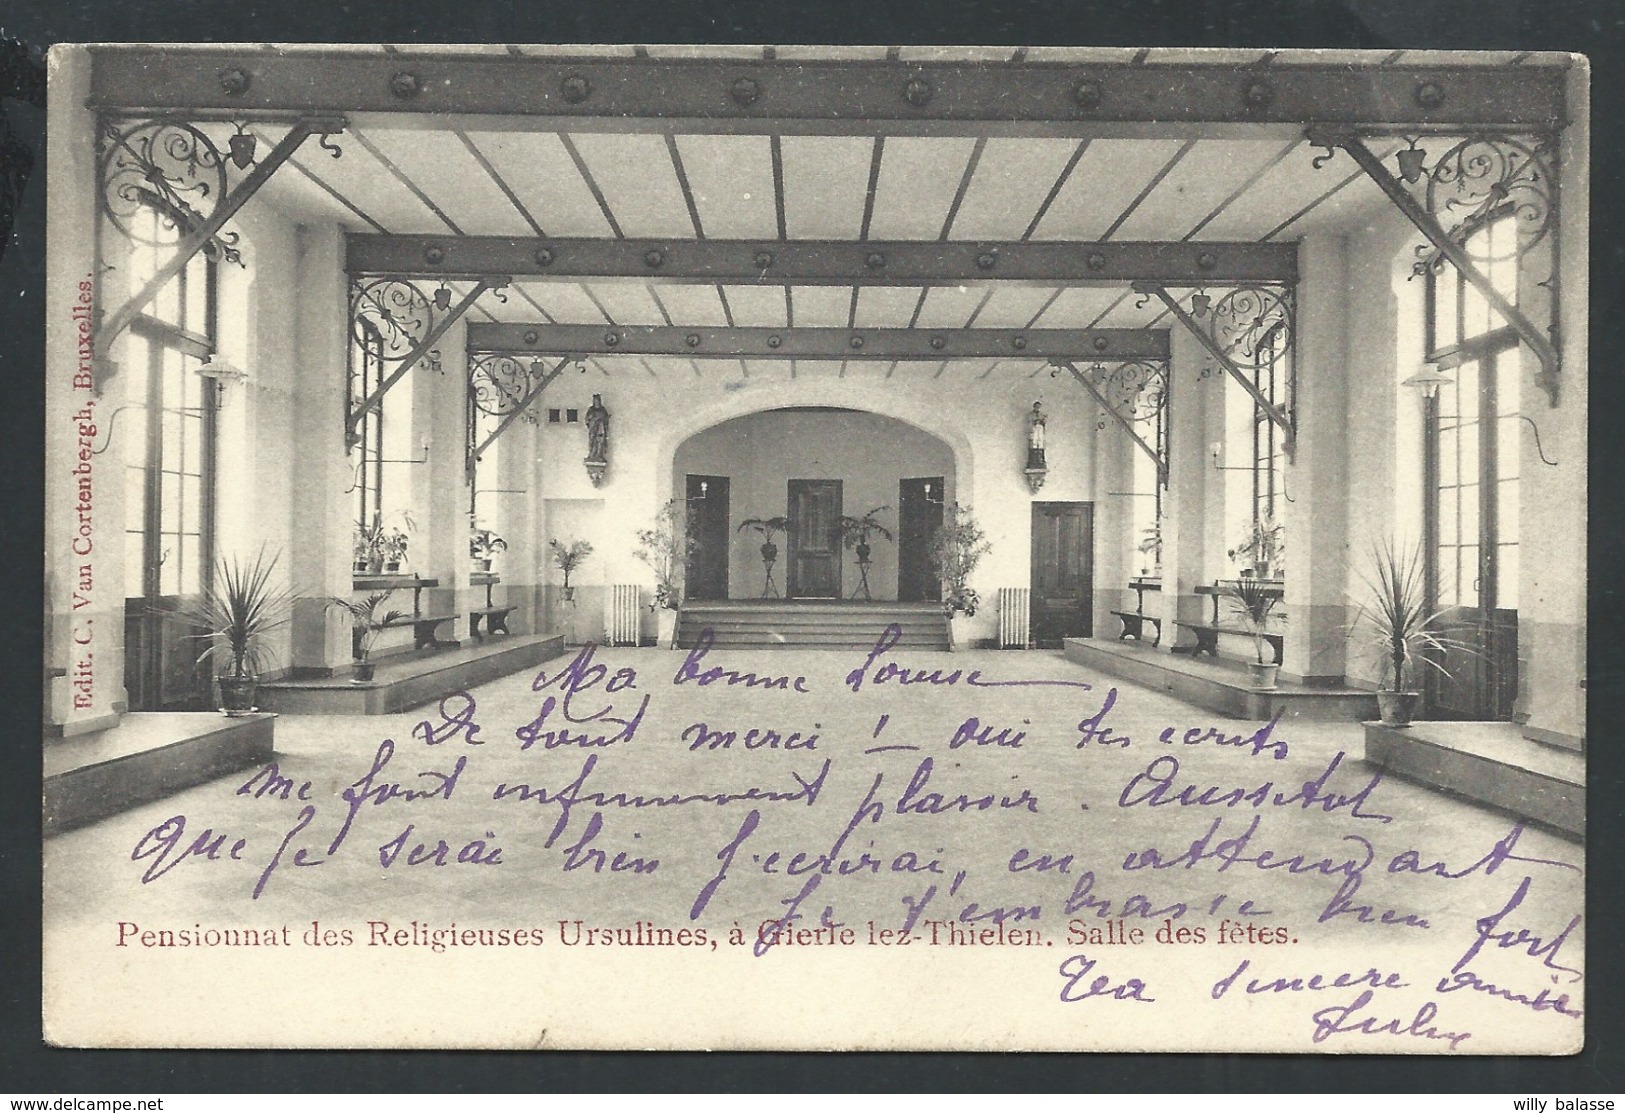 Edit. C. Van Cortenbergh, Bruxelles.
Ma bonne Louise
De tout merci ! – oui tes ecrits
me font infiniment plaisir. Aussitot
que je serai bien j'ecrirai, en attendant
je t'embrasse bien fort
Pensionnat des Religieuses Ursulines, à Gierle lez-Thielen. Salle des fêtes.
Ta sincere amie
willy balasse